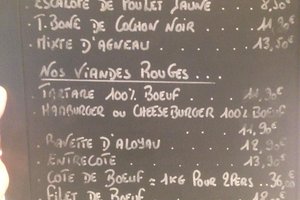 ESCALOPE DE POULET JAUNE . . 8,50€
T. BONE DE COCHON NOIR . . 11,90€
MIXTE D'AGNEAU . . . . 13,50€
NOS VIANDES ROUGES ...
TARTARE 100% BOEUF . . . 11,90€
HAMBURGER OU CHEESEBURGER 100% BOEUF
11,90€
BAVETTE D'ALOYAU . . . 12,90€
ENTRECÔTE . . . . 13,90€
CÔTE DE BOEUF ≈ 1KG POUR 2 PERS . 36,00€
FILET DE BOEUF